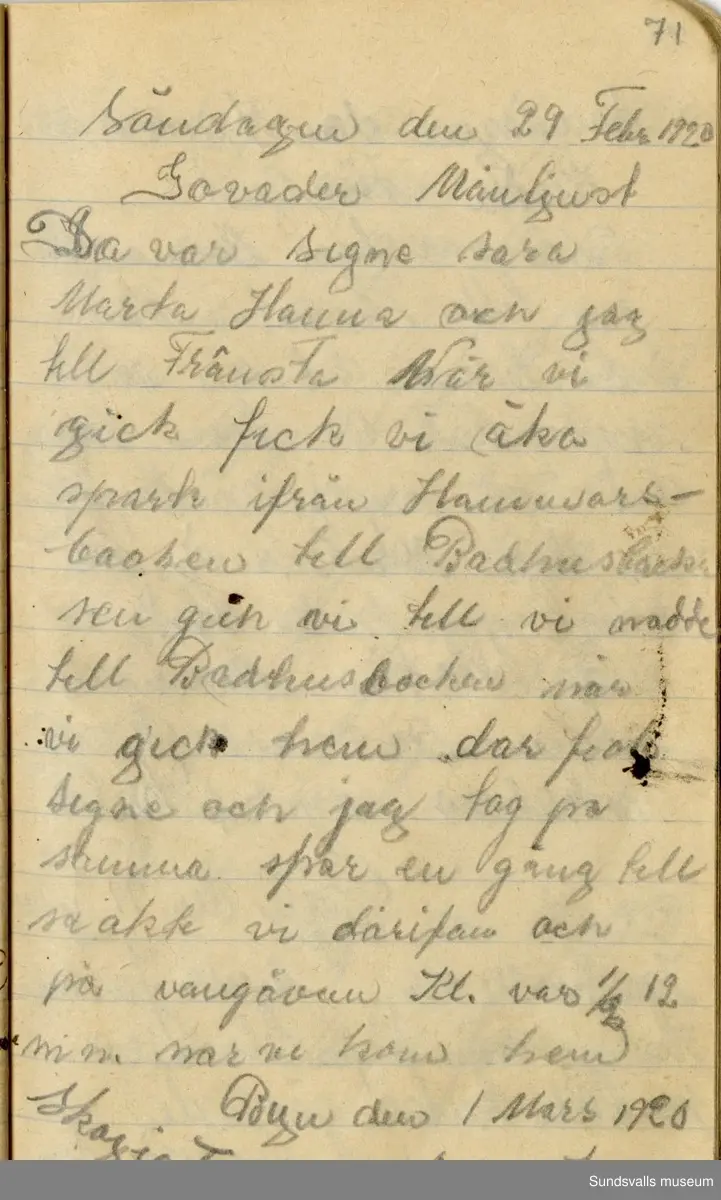 71
Söndagen den 29 Febr 1920
Govader Månljust
Da var Signe Sara
Marta Hanna och jag
till Frånosta När vi
gick fick vi åka
spark ifrån Hammars-
backen till Badhusbacken
sen gick vi till vi nadde
till Badhusbocken när
vi gick hem dar fick
Signe och jag tag pa
samma spar en gång till
sa akte vi därifan och
på vangåvan Kl. var 1/2 12
nar vi kom hem
Byn den 1 Mars 1920
Sundsvalls museum